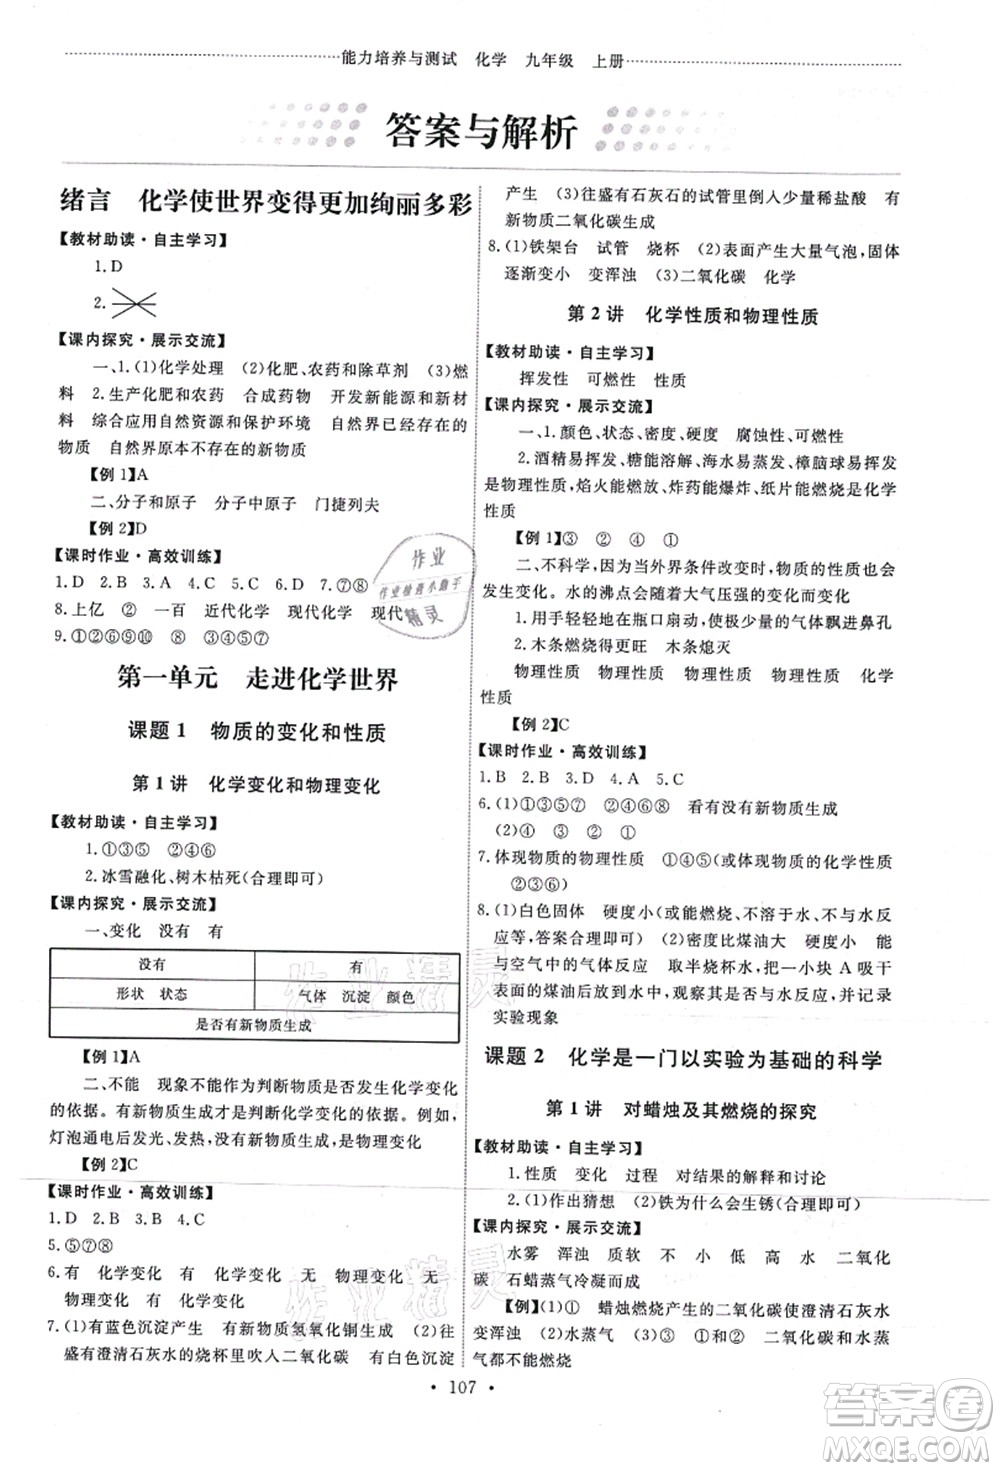 能力培养与测试　化学　九年级　上册
答案与解析
绪言　化学使世界变得更加绚丽多彩
【教材助读·自主学习】
1. D
2.
【课内探究·展示交流】
一、1. (1)化学处理　(2)化肥、农药和除草剂　(3)燃
料　2. 生产化肥和农药　合成药物　开发新能源和新材
料　综合应用自然资源和保护环境　自然界存在的
物质　自然界原本不存在的新物质
【例 1】A
二、分子和原子　分子中原子　门捷列夫
【例 2】D
【课时作业·高效训练】
1. D　2. D　3. A　4. B　5. C　6. D　7. ⑦⑧
8. 上亿　②　一百　近代化学　现代化学　现代
9. ①②⑥⑨⑩　⑧　③④⑤⑦
第一单元　走进化学世界
课题 1　物质的变化和性质
第 1 讲　化学变化和物理变化
【教材助读·自主学习】
1. ①③⑤　②④⑥
2. 冰雪融化、树木枯死(合理即可)
【课内探究·展示交流】
一、变化　没有　有
没有　有
形状　状态　气体　沉淀　颜色
是否有新物质生成
【例 1】A
二、不能　现象不能作为判断物质是否发生化学变化
的依据。有新物质生成才是判断化学变化的依据。例如,
灯泡通电后发光、发热,没有新物质生成,是物理变化
【例 2】C
【课时作业·高效训练】
1. D　2. B　3. D　4. C
5. ⑤⑦⑧
6. 有　化学变化　有　化学变化　无　物理变化　无
物理变化　有　化学变化
7. (1)有蓝色沉淀产生　有新物质氢氧化铜生成　(2)往
盛有澄清石灰水的烧杯里吹人二氧化碳　有白色沉淀
产生　(3)往盛有石灰石的试管里倒人少量稀盐酸　有
新物质二氧化碳生成
8. (1)铁架台　试管　烧杯　(2)表面产生大量气泡,固体
逐渐变小　变浑浊　(3)二氧化碳　化学
第 2 讲　化学性质和物理性质
【教材助读·自主学习】
挥发性　可燃性　性质
【课内探究·展示交流】
一、1. 颜色、状态、密度、硬度　腐蚀性、可燃性
2. 酒精易挥发、糖能溶解、海水易蒸发、樟脑球易升华
是物理性质,焰火能燃放、炸药能爆炸、纸片能燃烧是化学
性质
【例 1】③　②　④　①
二、不科学,因为当外界条件改变时,物质的性质也会
发生变化。水的沸点会随着大气压强的变化而变化
1. 用手轻轻地在瓶口扇动,使极少量的气体飘进鼻孔
2. 木条燃烧得更旺　木条熄灭
物理性质　物理性质　物理性质　化学性质　化学
性质
【例 2】C
【课时作业·高效训练】
1. B　2. B　3. D　4. A　5. C
6. (1)①③⑤⑦　②④⑥⑧　看有没有新物质生成
(2)④　③　②　①
7. 体现物质的物理性质　①④⑤(或体现物质的化学性质
②③⑥)
8. (1)白色固体　硬度小(或能燃烧、不溶于水、不与水反
应等,答案合理即可)　(2)密度比煤油大　小　能
与空气中的气体反应　取半烧杯水,把一小块 A 吸干
表面的煤油后放到水中,观察其是否与水反应,并记录
实验现象
课题 2　化学是一门以实验为基础的科学
第 1 讲　对蜡烛及其燃烧的探究
【教材助读·自主学习】
1. 性质　变化　过程　对结果的解释和讨论
2. (1)作出猜想　(2)铁为什么会生锈(合理即可)
【课内探究·展示交流】
水雾　浑浊　质软　不　小　低　高　水　二氧化
碳　石蜡蒸气冷凝而成
【例】(1)①　蜡烛燃烧产生的二氧化碳使澄清石灰水
变浑浊　②水蒸气　(2)①　②　二氧化碳和水蒸
气都不能燃烧
• 107 •
作业
作业检查小助手
精灵
作业精灵
作业精灵
答案圈
MXQE.COM